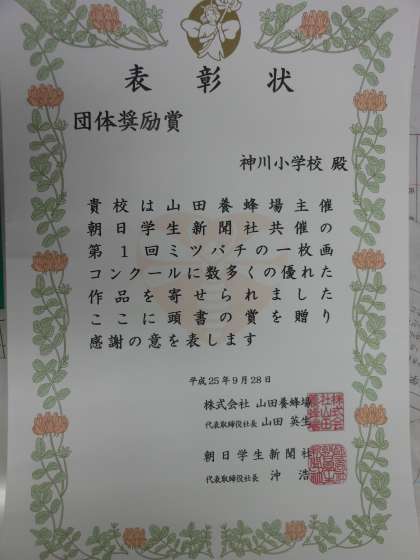 表彰状
団体奨励賞
神川小学校 殿
貴校は山田養蜂場主催
朝日学生新聞社共催の
第1回ミツバチの一枚画
コンクールに数多くの優れた
作品を寄せられました
ここに頭書の賞を贈り
感謝の意を表します
平成25年9月28日
株式会社 山田養蜂場
代表取締役社長 山田 英生
朝日学生新聞社
代表取締役社長 沖 浩